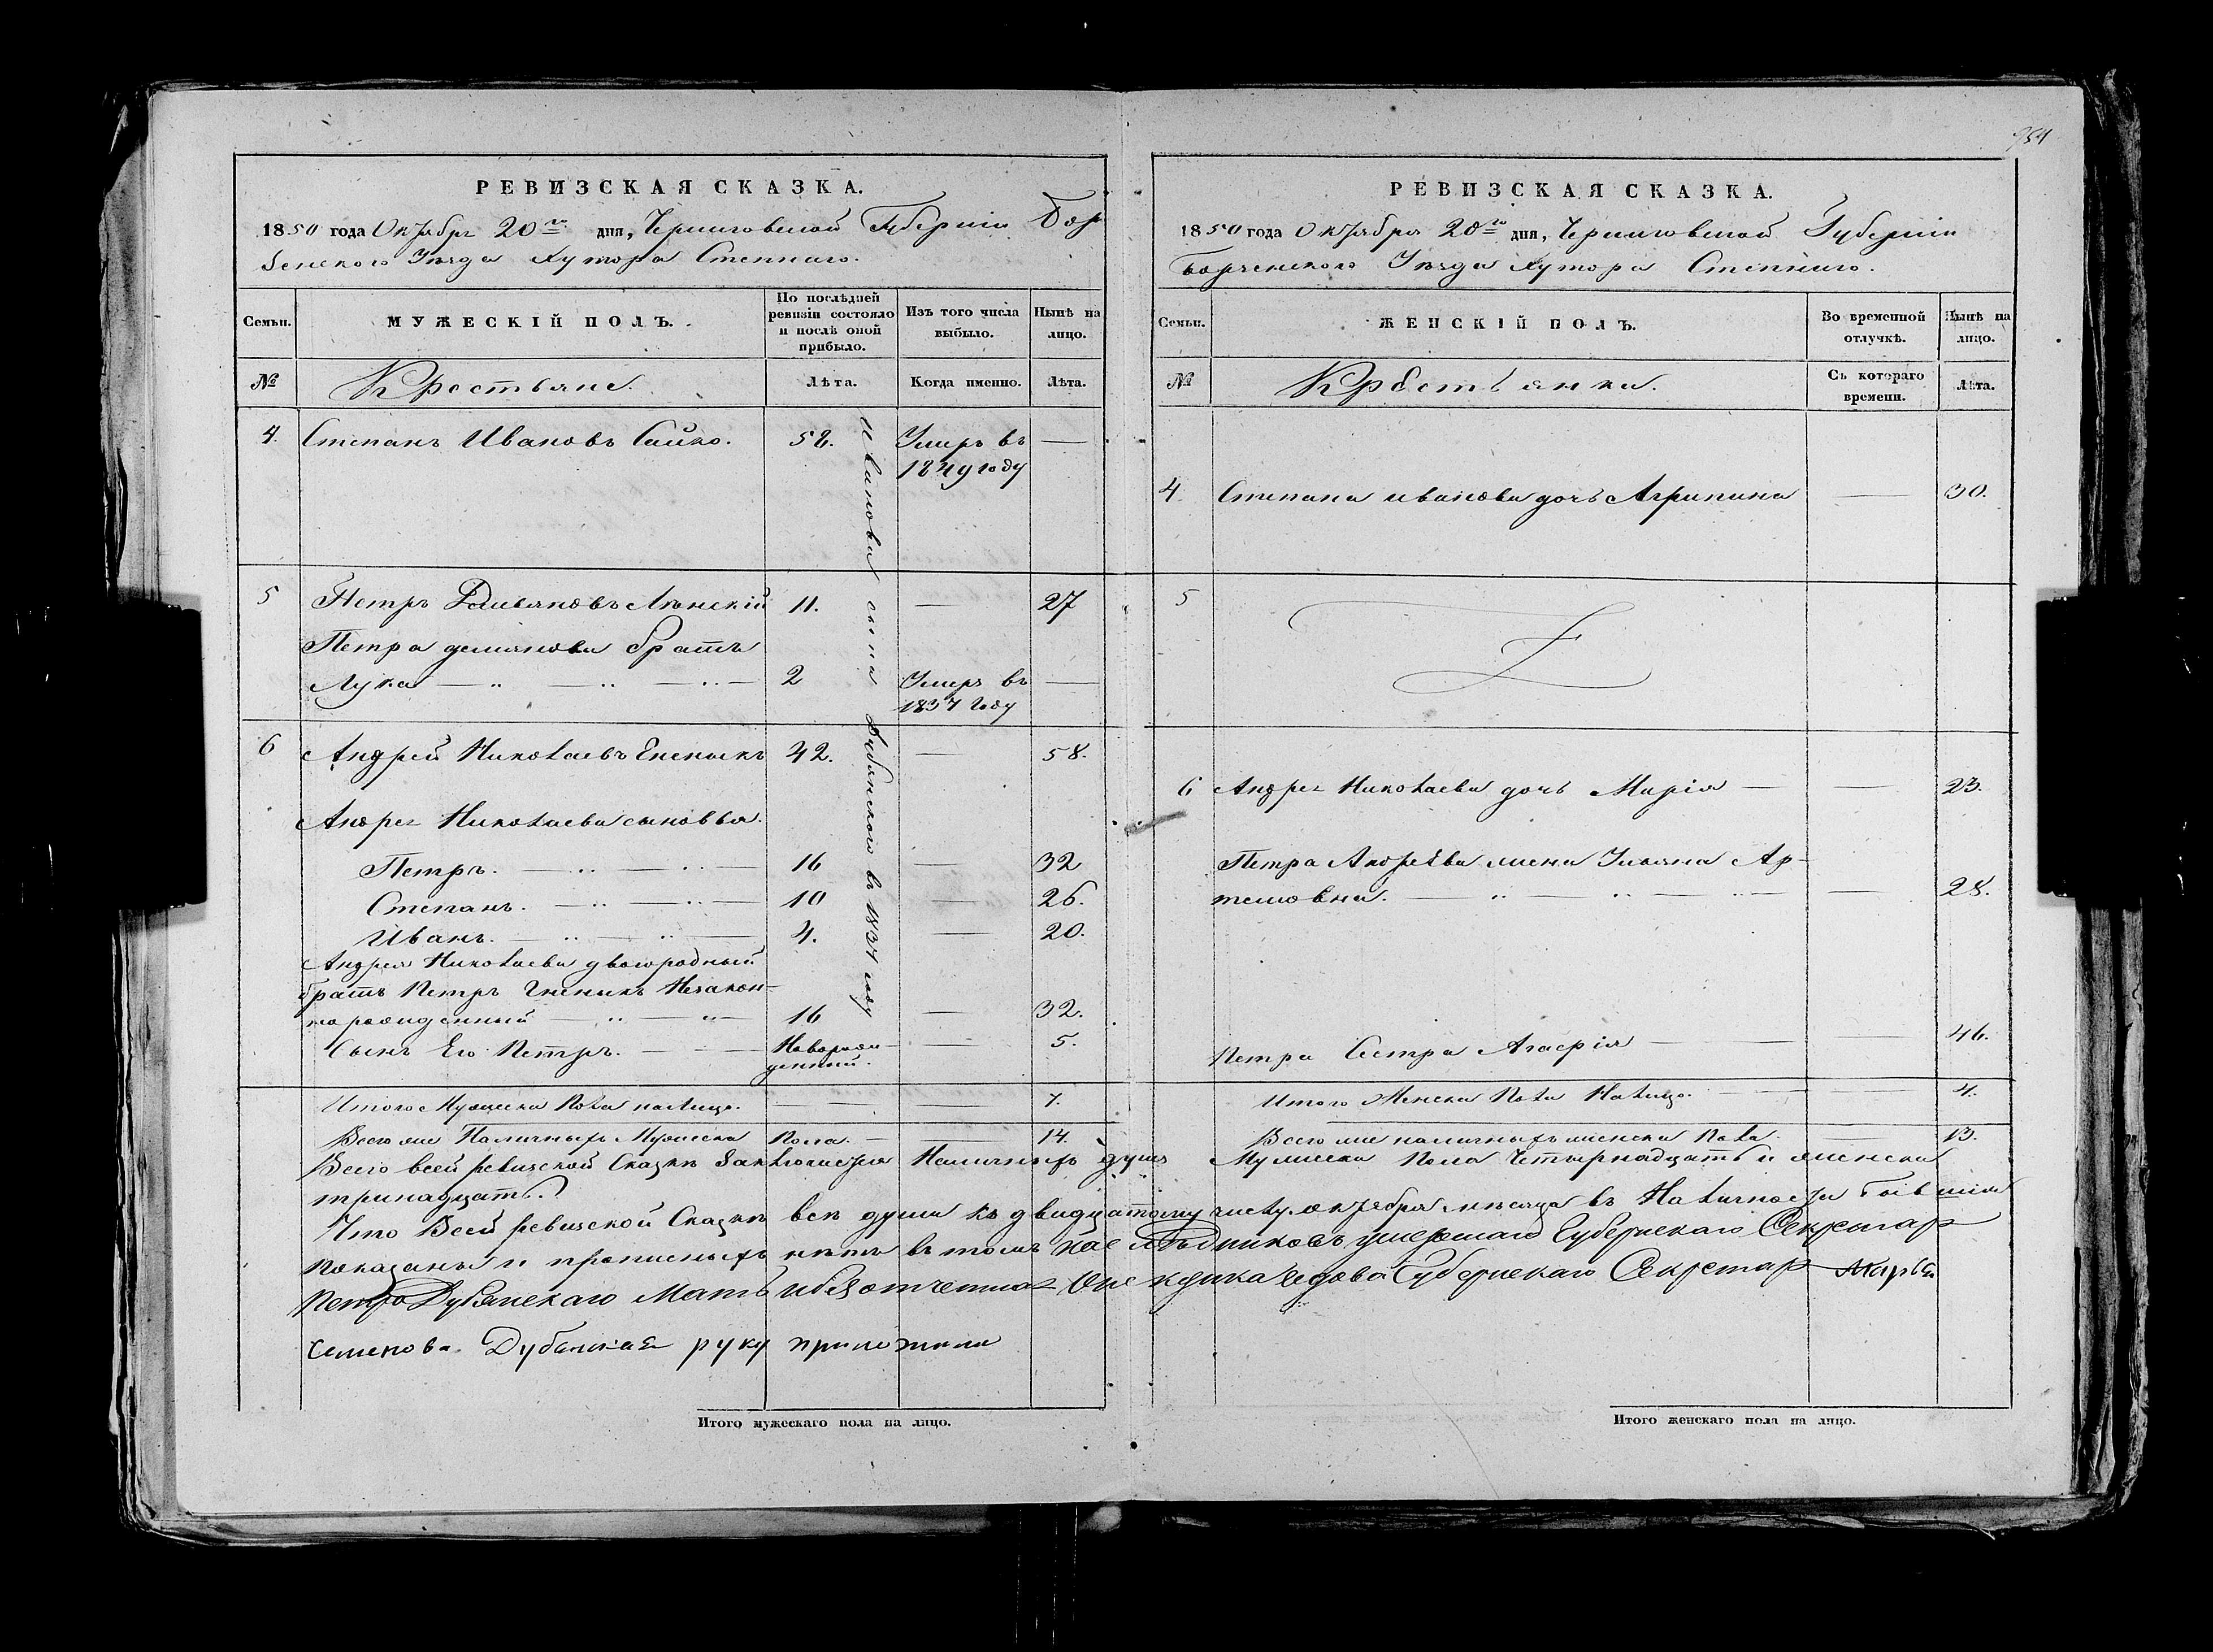 954
РЕВИЗСКАЯ СКАЗКА.
1850 года Октября 20го дня, Черниговской Губернiи Бор
зенского Уезда Хутора Степнаго.
Семьи.
МУЖЕСКIЙ ПОЛЪ.
По послѣдней ревизiи состояло и послѣ оной прибыло.
Изъ того числа выбыло.
Нынѣ на лицо.
№
Крестьяне.
Лѣта.
Когда именно.
Лѣта.
4. Степанъ Ивановъ Сайко. 58. Умеръ въ —
1849 году
5 Петръ Демьяновъ 11. — 27
Петра демянова братъ
Лука 2 Умеръ въ —
1837 году
6 Андрей Николаевъ 42. — 58.
Андрея Николаева сыновья.
Петръ. 16 — 32
Степанъ. 10 — 26.
Иванъ. 4. — 20.
Андрея Николаева двоюродный
братъ Петръ Незакон-
норожденный 16 — 32.
Сынъ Его Петръ. Новорож- — 5.
денный.
Иванова сына Дубянского въ 1837 году
Итого Мужеска Пола налицо. 7.
Всего же Наличныхъ Мужеска Пола. — 14.
РЕВИЗСКАЯ СКАЗКА.
1850 года Октября 20го дня, Черниговской Губернiи
Борзенского Уезда Хутора Степнаго.
Семьи.
ЖЕНСКIЙ ПОЛЪ.
Во временной отлучкѣ.
Нынѣ на лицо.
№
Крестьянки.
Съ котораго времени.
Лѣта.
4. Степана иванова дочь Агрипина — 30.
5
6 Андрея Николаева дочь Марiя — 23.
Петра Андрѣева жена Ульяна Ар-
темовна. — 28.
Петра Сестра Агафiя — 46.
Итого Женска Пола Налицо. 4.
Всего же наличныхъ женска Пола. 13.
Всего всей ревизской Сказкѣ Заключается Наличныхъ душъ Мужеска Пола Четырнадцать и женска
тринадцать.
Что Всей ревизской Сказкѣ всѣ души къ двадцатому числу октября месяца въ Наличности бывшiи
показаны и прописныхъ нѣтъ въ томъ наслѣдниковъ умершаго Губернскаго Секретар
Петра Дубянскаго Мать Опекунка вдова Губернскаго Секретар Марья
семенова Дубянская руку приложила
Итого мужескаго пола на лицо.
Итого женскаго пола на лицо.